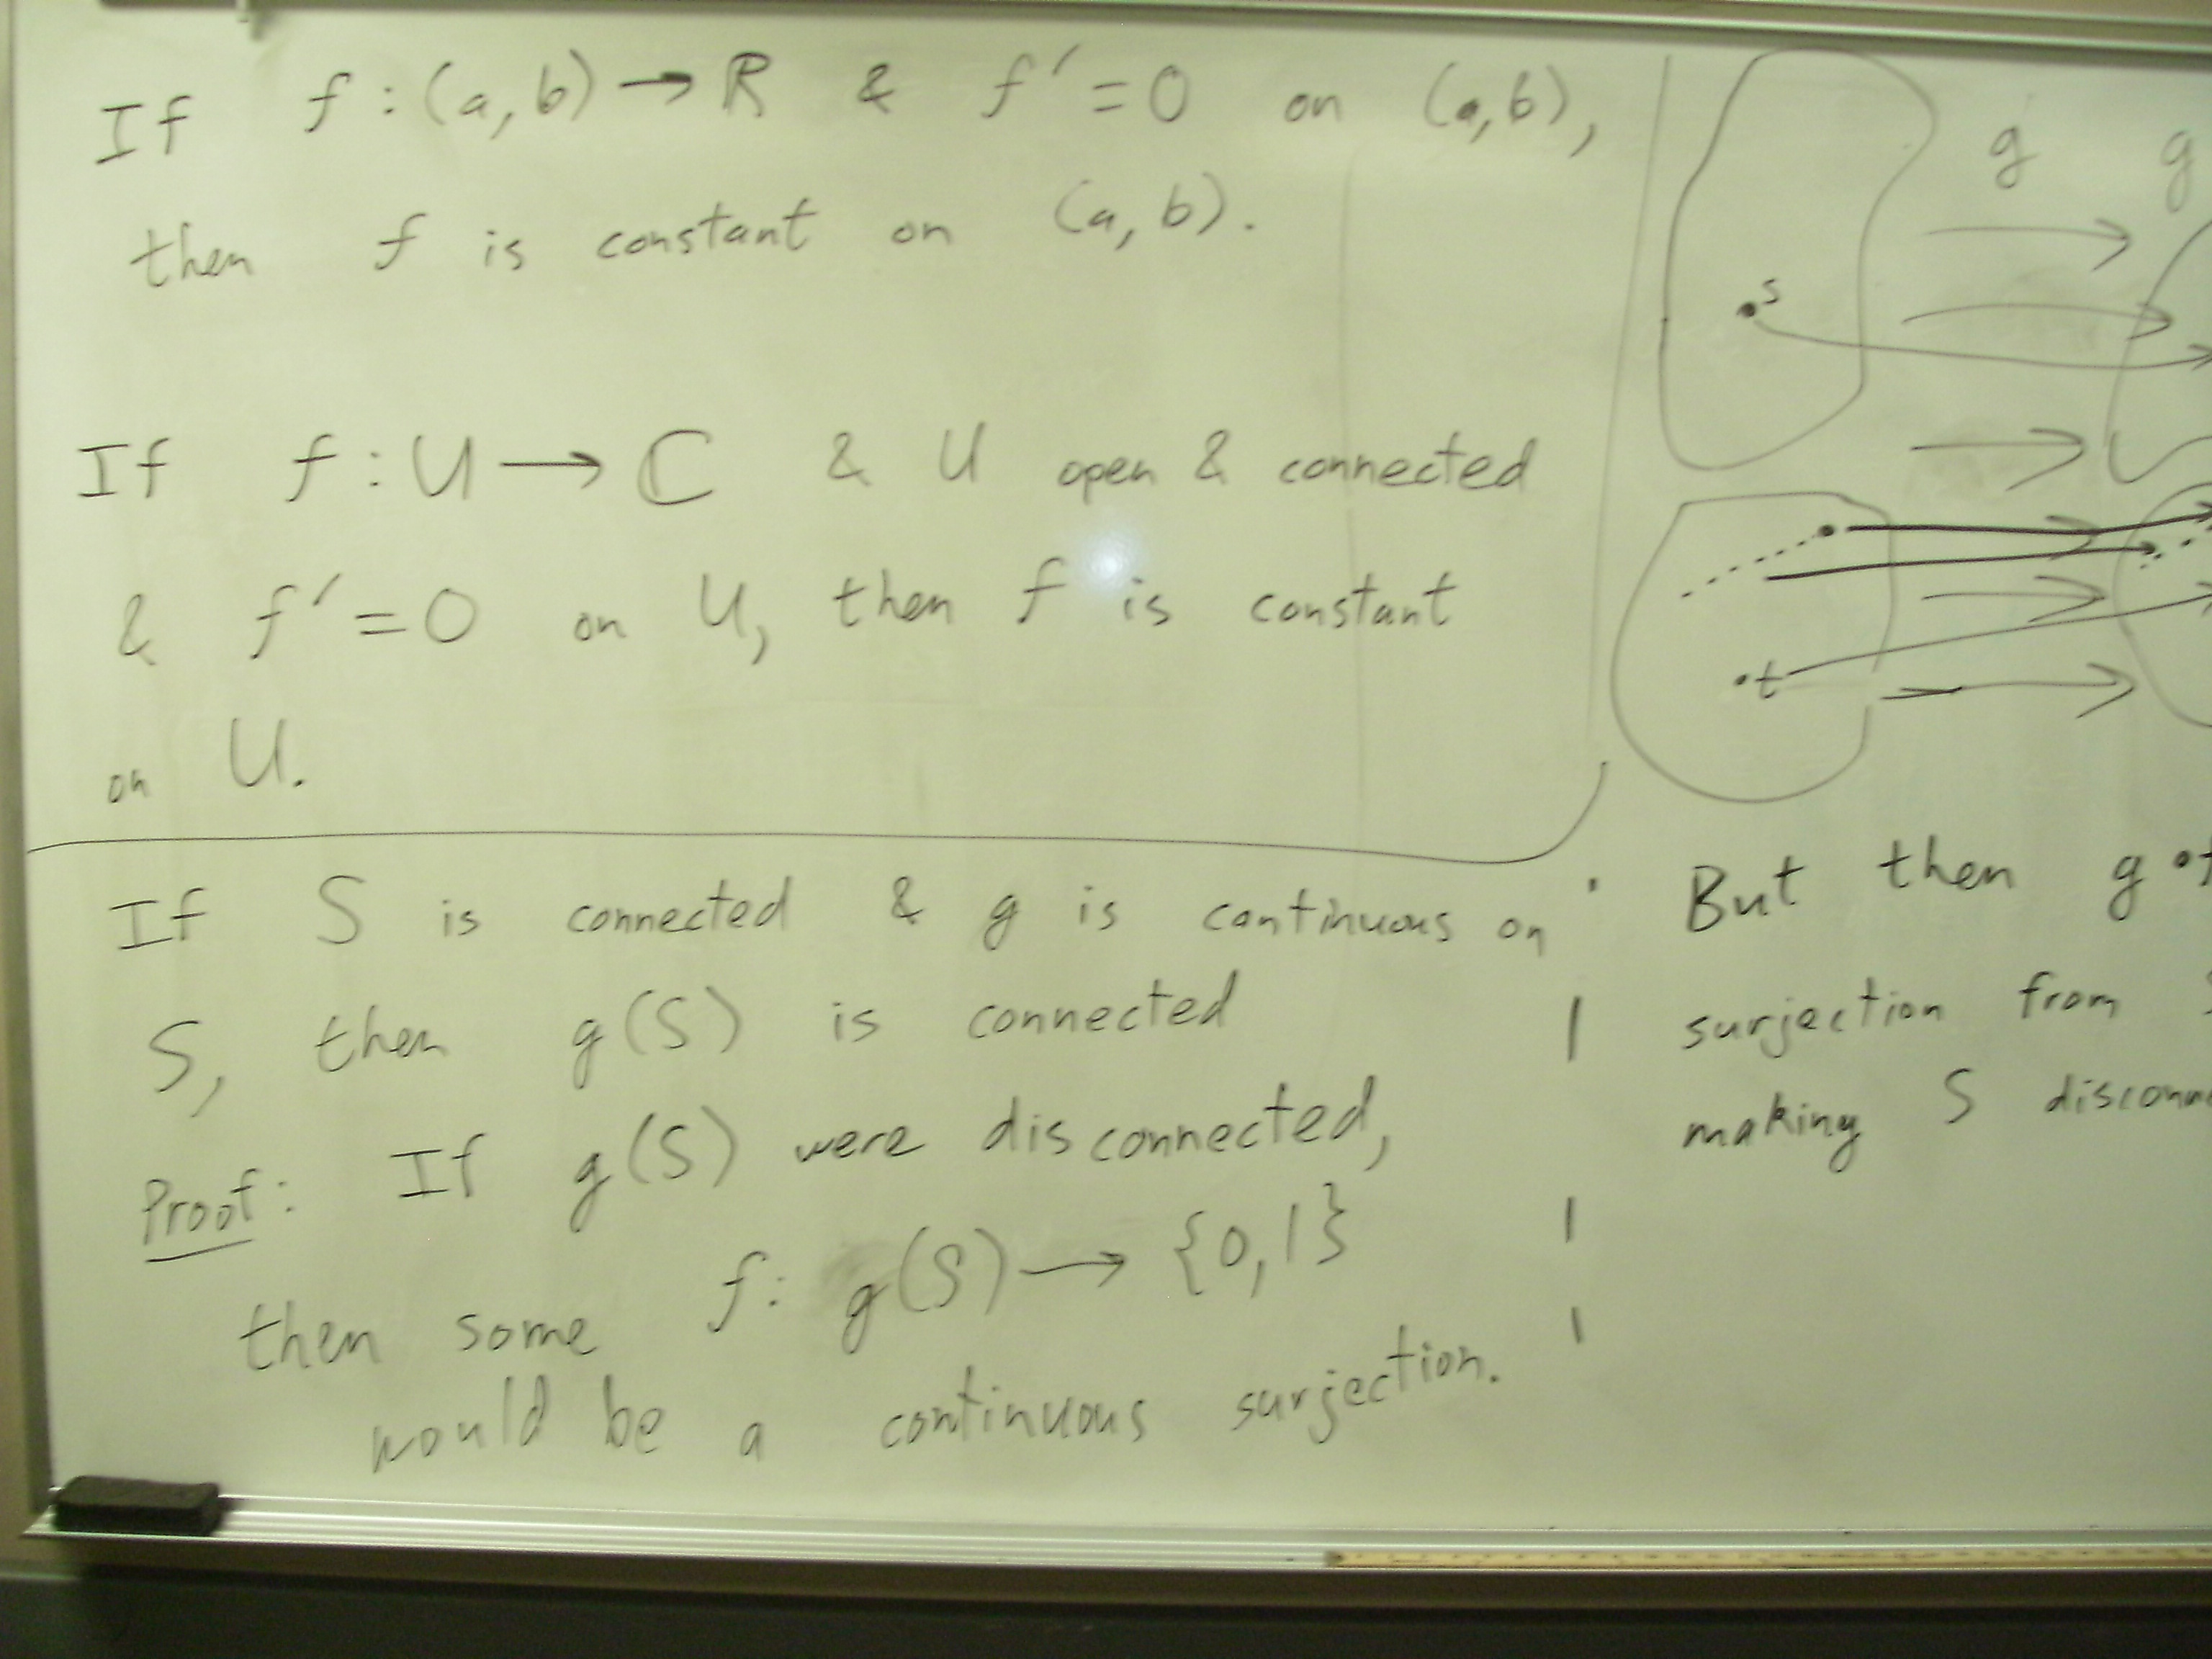 If f : (a, b) → R & f' = 0 on (a,b),
then f is constant on (a, b).
If f : U → ℂ & U open & connected
& f' = 0 on U, then f is constant
on U.
If S is connected & g is continuous on
S, then g(S) is connected
Proof: If g(S) were disconnected,
then some f: g(S) → {0,1}
would be a continuous surjection.
g g
s
t
But then g
surjection from
making S